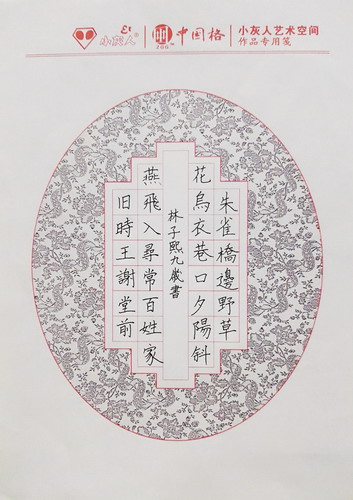 小灰人
中国格
小灰人艺术空间
作品专用笺
朱雀橋邊野草
花烏衣巷口夕陽斜
旧時王謝堂前
燕飛入尋常百姓家
林子熙九歲書